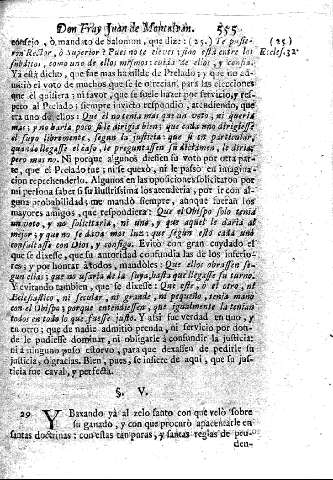 Don Fray Juan de Montalván. 555
consejo, ò mandato de Salomon, que dize: (25.) Te pusieron (25)
Rector, ò Superior? Pues no te eleves; sino está entre los Eccles. 32
subditos, como uno de ellos mismos: cuida de ellos, y confia.
Yà està dicho, que fue mas humilde de Prelado; y que no ad-
mitiò el voto de muchos que se le ofrecian, para las elecciones
que èl quisiera en favor, que se suele hazer por servicio, y res-
peto al Prelado; siempre invicto respondiò, atendiendo, que
era uno de ellos: Que èl no tenia mas que un voto, ni queria
mas; y no haria poco si le dirigia bien; que cada uno dirigiesse
el suyo libremente, segun la justicia; que si en particular,
quando llegasse el caso, le preguntassen su dictamen, le diria;
pero mas no. Ni porque algunos diessen su voto por otra par-
te, que el Prelado tue; ni se quexò, ni le passò en imagina-
cion reprehenderlo. Algunos en las oposiciones solicitaron por
mi persona saber si su Ilustrissima los atenderia, por ir con al-
guna probabilidad; me mandò siempre, aunque fueran los
mayores amigos, que respondiera: Que el Obispo solo tenia
un voto, y no solicitaria, ni uno, y que aquel le daria al
mejor, y que no se daria mas luz; que segun esto cada uno
consultasse con Dios, y consigo. Evitò con gran cuydado el
que se dixesse, que su autoridad confundia las de los inferio-
res; y por honrar à todos, mandòles: Que ellos obrassen se-
gun ellas; que no usaria de la suya, hasta que llegasse su turno.
Y evitando tambien, que se dixesse: Que este, ò el otro, ni
Eclesiastico, ni secular, ni grande, ni pequeño, tenia mano
con el Obispo; porque entendiessen, que igualmente la tenian
todos en todo lo que fuesse justo. Y assi fue verdad en uno, y
en otro; que de nadie admitiò prenda, ni servicio por don-
de le pudiesse dominar, ni obligarle à confundir la justicia;
ni à ninguno puso estorvo, para que dexassen de pedirle su
justicia, ò gracias. Bien, pues, se infiere de aqui, que su justi-
cia fue cavàl, y perfecta.
§. V.
29 YBaxando yà al zelo santo con que velò sobre
su ganado, y con que procurò apacentarle en
santas doctrinas: con estas tan puras, y santas reglas de pru-
den-